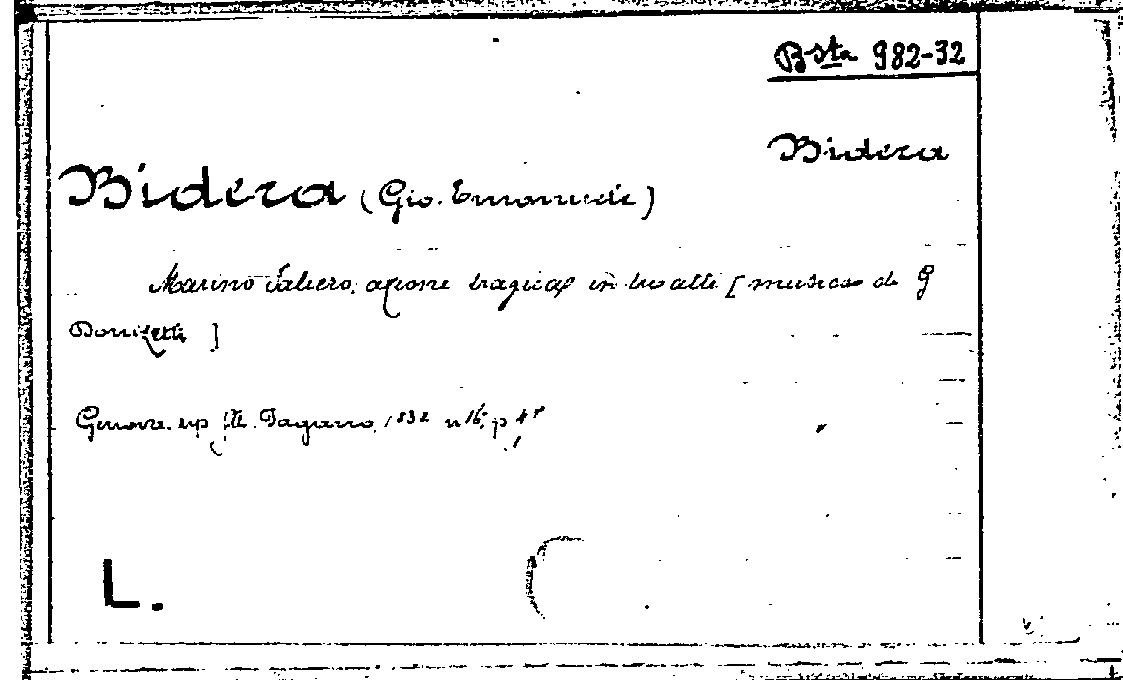 Bsta 982-32
Bidera
Bidera (Gio. Emanuele)
Marino Faliero, azione tragica in tre atti [musica di G
Donizetti]
Genova. tip. flli. Pagano, 183 n 16, p.
L.